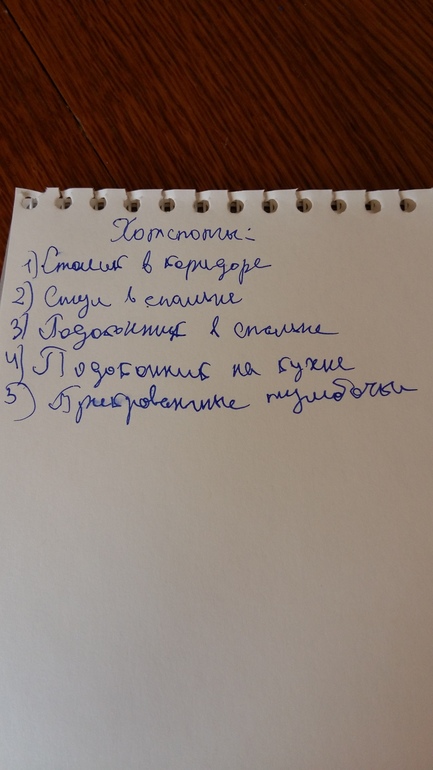 Хотспоты:
1) Столик в коридоре
2) Стул в спальне
3) Подоконник в спальне
4) Подоконник на кухне
5) Прикроватные тумбочки